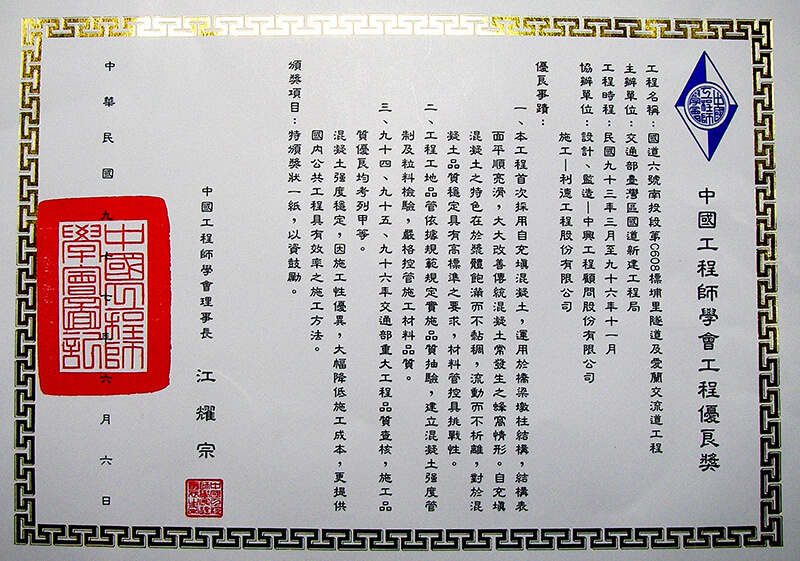 中國工程師學會工程優良獎
中國工程師學會
工程名稱：國道六號南投段第C608標埔里隧道及愛蘭交流道工程
主辦單位：交通部臺灣區國道新建工程局
工程時程：民國九十三年三月至九十六年十一月
協辦單位：設計、監造—中興工程顧問股份有限公司
施工—利德工程股份有限公司
優良事蹟：
一、本工程首次採用自充填混凝土，運用於橋梁墩柱結構，結構表
面平順亮滑，大大改善傳統混凝土常發生之蜂窩情形。自充填
混凝土之特色在於漿體飽滿而不黏稠，流動而不析離，對於混
凝土品質穩定具有高標準之要求，材料管控具挑戰性。
二、工程工地品管依據規範規定實施品質抽驗，建立混凝土強度管
制及粒料檢驗，嚴格控管施工材料品質。
三、九十四、九十五、九十六年交通部重大工程品質查核，施工品
質優良均考列甲等。
混凝土強度穩定，因施工性優異，大幅降低施工成本，更提供
國內公共工程具有效率之施工方法。
頒獎項目：特頒獎狀一紙，以資鼓勵。
中國工程師學會理事長 江耀宗
中華民國九十七年六月六日
中國工程師
學會圖記